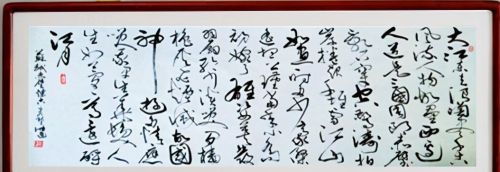 大江东去浪淘尽千古
风流人物故垒西边
人道是三國周郎赤壁
乱石穿空惊涛拍
岸卷起千堆雪江山
如画一时多少豪杰
遥想公瑾当年小乔
初嫁了雄姿英发
羽扇纶巾谈笑间樯
橹灰飞烟灭故國
神游多情应
笑我早生华发人
生如梦一尊还酹
江月